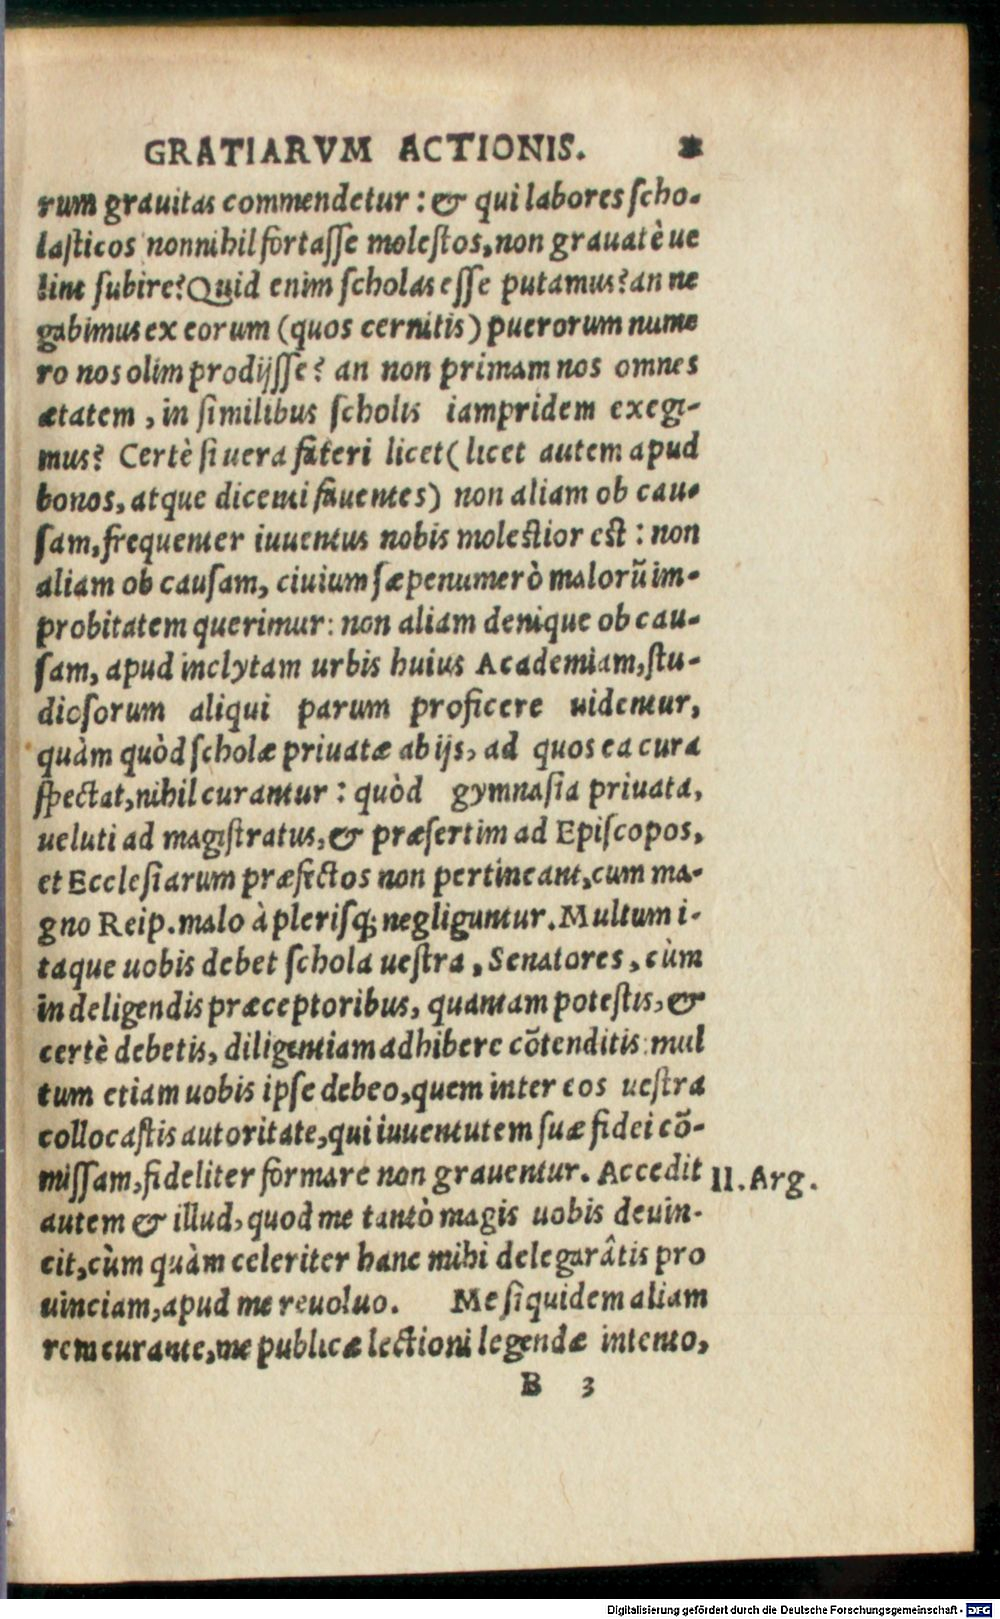 GRATIARVM ACTIONIS.
rum grauitas commendetur: & qui labores ſcho-
laſticos nonnihil fortaſſe moleſtos, non grauatè ue
lint ſubire? Quid enim ſcholas eſſe putamus? an ne
gabimus ex eorum (quos cernitis) puerorum nume
ro nos olim prodijſſe? an non primam nos omnes
ætatem, in ſimilibus ſcholis iampridem exegi-
mus? Certè ſi uera fateri licet (licet autem apud
bonos, atque dicenti fauentes) non aliam ob cau-
ſam, frequenter iuuentus nobis moleſtior eſt: non
aliam ob cauſam, ciuium ſæpenumerò malorũ im-
probitatem querimur: non aliam denique ob cau-
ſam, apud inclytam urbis huius Academiam, ſtu-
dioſorum aliqui parum proficere uidentur,
quàm quòd ſcholæ priuatæ ab ijs, ad quos ea cura
ſpectat, nihil curantur: quòd gymnaſia priuata,
ueluti ad magiſtratus, & præſertim ad Epiſcopos,
et Eccleſiarum præfectos non pertineant, cum ma-
gno Reip. malo à pleriſq; negliguntur. Multum i-
taque uobis debet ſchola ueſtra, Senatores, cùm
in deligendis præceptoribus, quantam poteſtis, &
certè debetis, diligentiam adhibere cõtenditis: mul
tum etiam uobis ipſe debeo, quem inter eos ueſtra
collocaſtis autoritate, qui iuuentutem ſuæ fidei cõ-
miſſam, fideliter formare non grauentur. Accedit II. Arg.
autem & illud, quod me tantò magis uobis deuin-
cit, cùm quàm celeriter hanc mihi delegarâtis pro
uinciam, apud me reuoluo. Me ſiquidem aliam
rem curante, me publicæ lectioni legendæ intento,
B 3
Digitalisierung gefördert durch die Deutsche Forschungsgemeinschaft - DFG